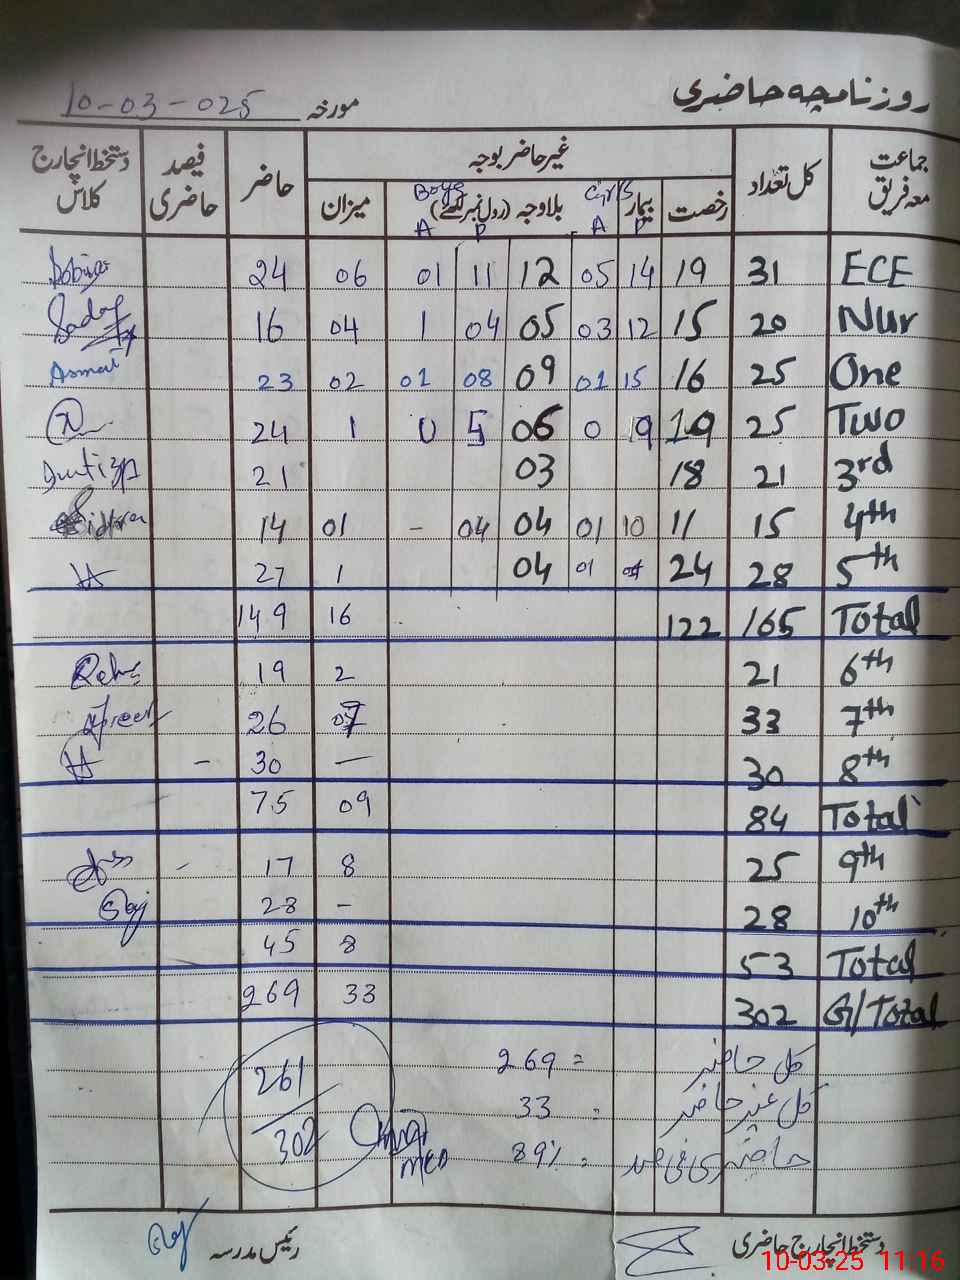 روزنامچہ حاضری مورخہ 10-03-025
جماعت معہ فریق کل تعداد غیر حاضر بوجہ حاضر فیصد حاضری دستخط انچارج کلاس
رخصت بیمار بلاوجہ (رول نمبر لکھئے) میزان
Girls Boys
P A P A
ECE 31 19 14 05 12 11 01 06 24
Nur 20 15 12 03 05 04 1 04 16 Sadaf
One 25 16 15 01 09 08 01 02 23 Asmat
Two 25 19 19 0 06 5 0 1 24
3rd 21 18 03 21
4th 15 11 10 01 04 04 - 01 14 Sidra
5th 28 24 01 04 1 27
Total 165 122 16 149
6th 21 2 19
7th 33 07 26
8th 30 — 30 -
Total 84 09 75
9th 25 8 17 -
10th 28 - 28
Total 53 8 45
G/Total 302 33 269
کل حاضر = 269
کل غیر حاضر = 33
حاضری فی صد = 89%
261
302
MEO
دستخط انچارج حاضری رئیس مدرسہ
10-03-25 11:16